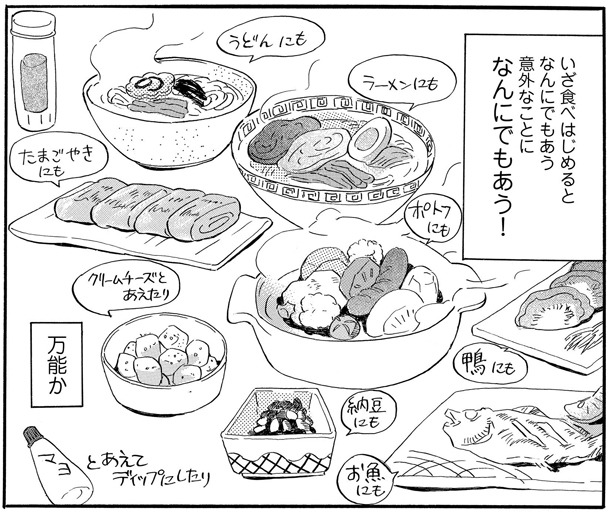 いざ食べはじめると
なんにでもあう
意外なことに
なんにでもあう！
うどんにも
ラーメンにも
たまごやき
にも
ポトフ
にも
クリームチーズと
あえたり
鴨にも
万能か
納豆
にも
お魚
にも
マヨ
とあえて
ディップにしたり